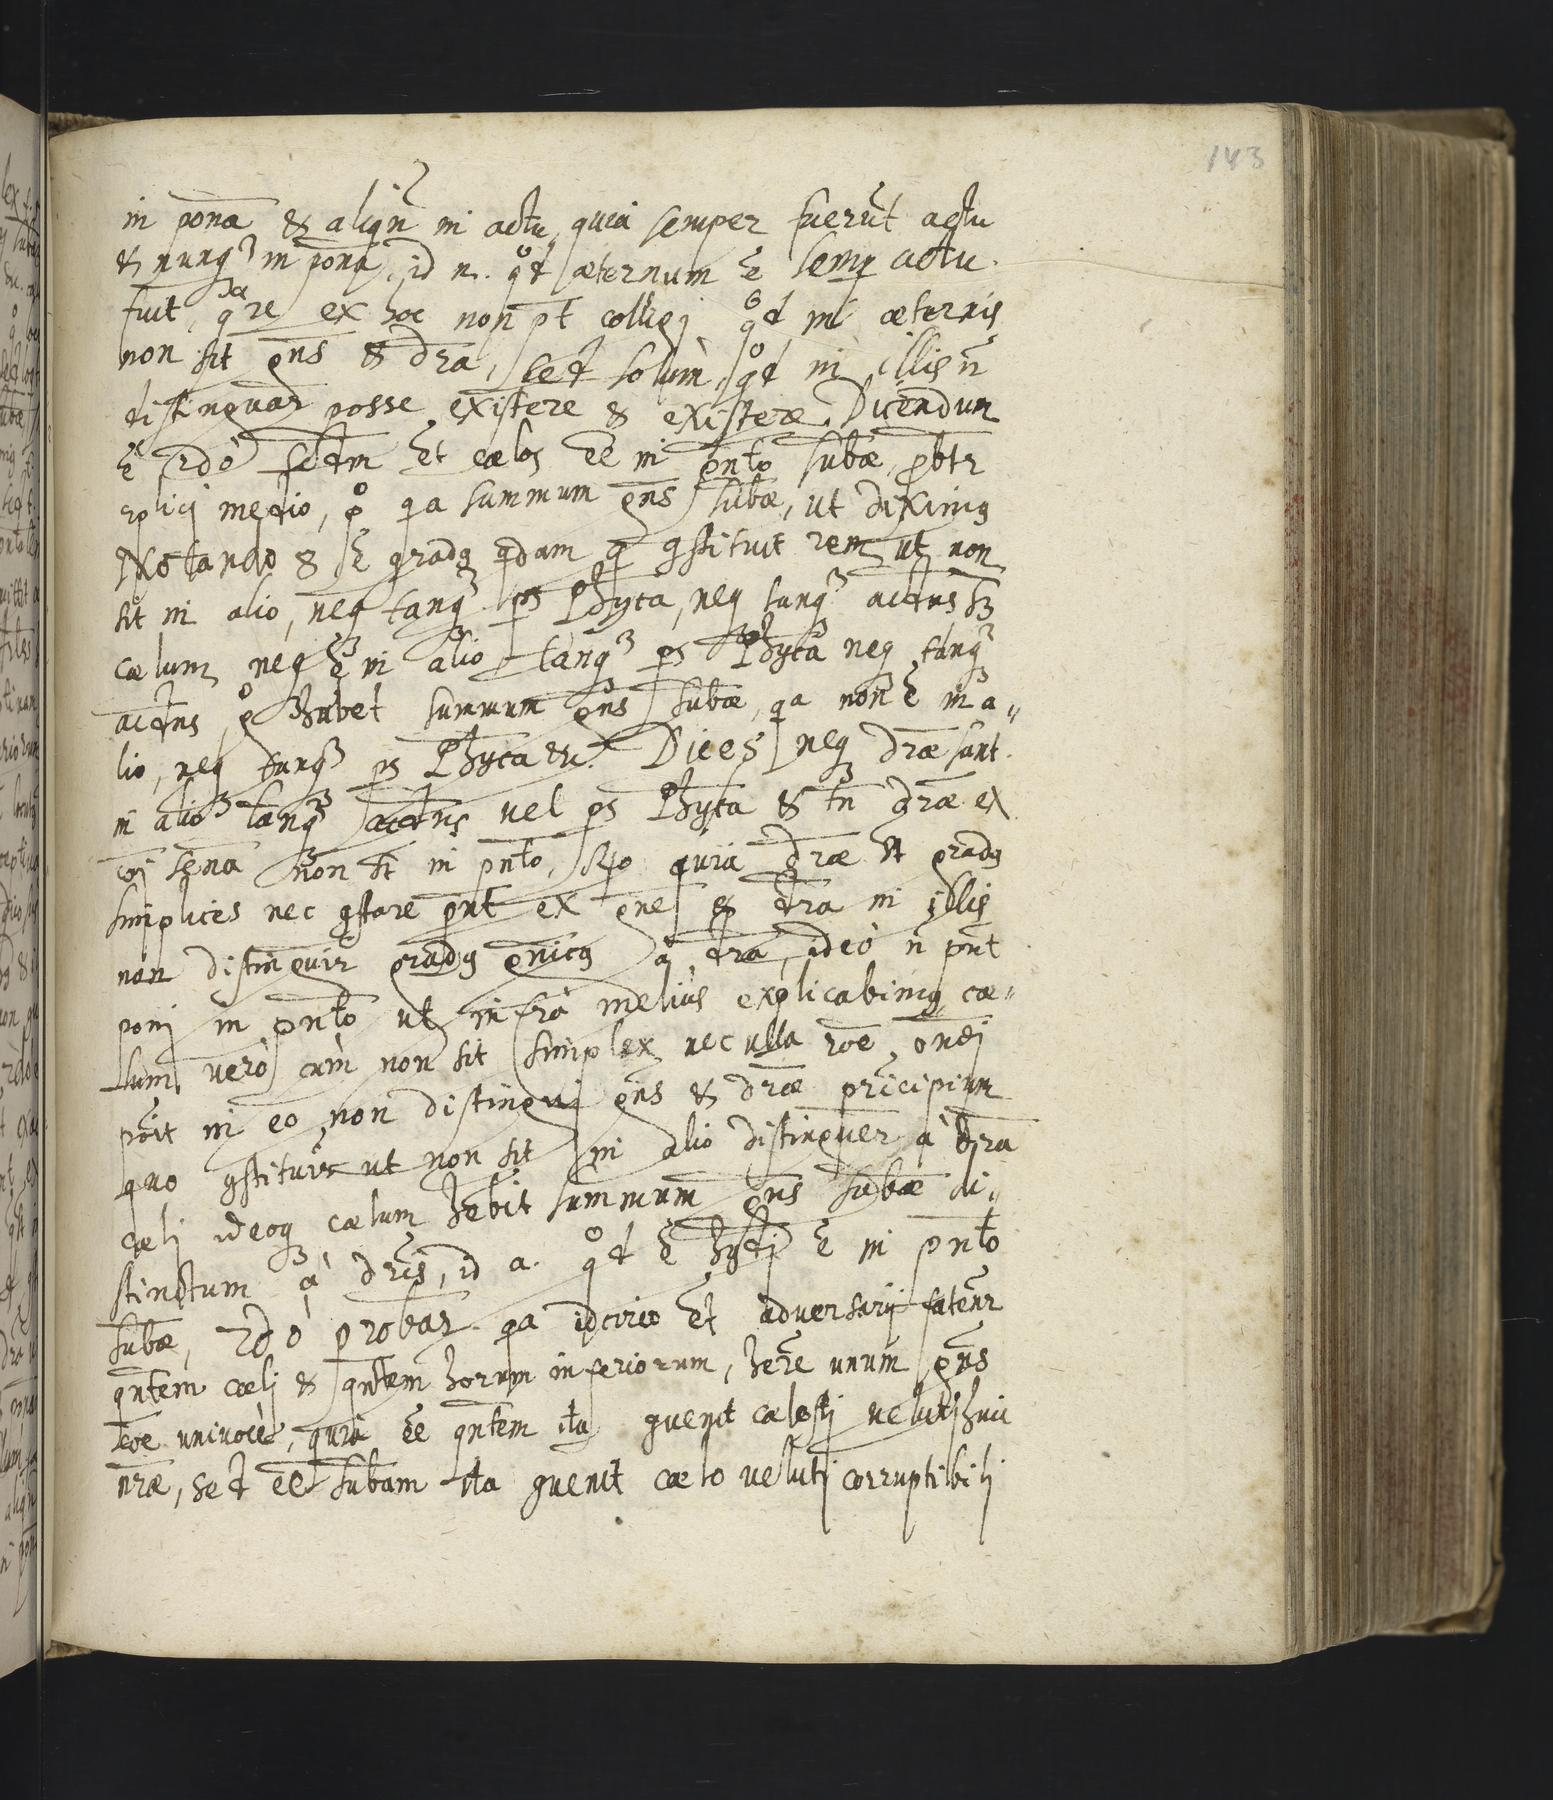 143
in pona̅ & aliqn̅ in actu, quia semper fueru̅t actu
& nunq̅ in pona̅, id n. qd aeternum e̅ semp actu
fuit, qare ex hoc non pt̅ colligj qd in aeternis
non sit gn̅s & dr̅a, sed solùm, qd in illis n̅
distinguar̅ posse existere & existere. Dicendum
e̅ 2dò et caelos e̅e in pn̅to sub̅ae, pbtr
qa summum gn̅s sub̅ae, ut diximus
notando 8 e̅ gradus qdam q gstituit rem ut non
sit in alio, neq tanq ps Phyca, neq tanq actus
caelum neq e̅ in alio tanq ps Phyca neq tanq
actus, g habet summum gn̅s sub̅ae, qa non e̅ in a„
lio, neq tanq ps Phyca &c. Dices neq dr̅ae sunt
in alio tanq actus vel ps Phyca & tn̅ dr̅ae ex
non st in pn̅to, quia dr̅ae st gradus
simplices nec gstare pn̅t ex gn̅e & dr̅a in illis
non distinguir̅ gradus gn̅icus à dr̅a, ideò n̅ pn̅t
ponj in pn̅to ut infrà meliùs explicabimus, cae„
lum verò cùm non sit simplex nec ulla ro̅e ondj
po̅it in eo non distinguj gn̅s & dr̅ae principium
quo gstituir̅ ut non sit in alio distinguer̅ à dr̅a
caelj ideoq caelum hēbit summum gn̅s sub̅ae di„
stinctum à dr̅is, id a. qd e̅ e̅ in pn̅to
sub̅ae, 2dò probar̅ qa idcirco et adversarij fatenr̅
qn̅tem caelj & qn̅tem horum inferiorum, he̅re unum gn̅s
univocè, quia e̅e qn̅tem ita gvenit caelestj velutj huic
nr̅ae, sed e̅e sub̅am ita gvenit caelo velutj corruptibilj